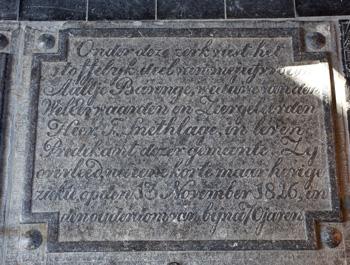 Onder deze zerk rust het
stoffelyk deel van mejufvrouw
Aaltje Baringe, weduwe van den
Weleerwaarden en Zeergeleerden
Heer, F. Snethlage, in leven
Predikant dezer gemeente. Zy
overleed na eene korte maar hevige
ziekte, op den 13 November 1826, in
den ouderdom van bijna 70 jaren